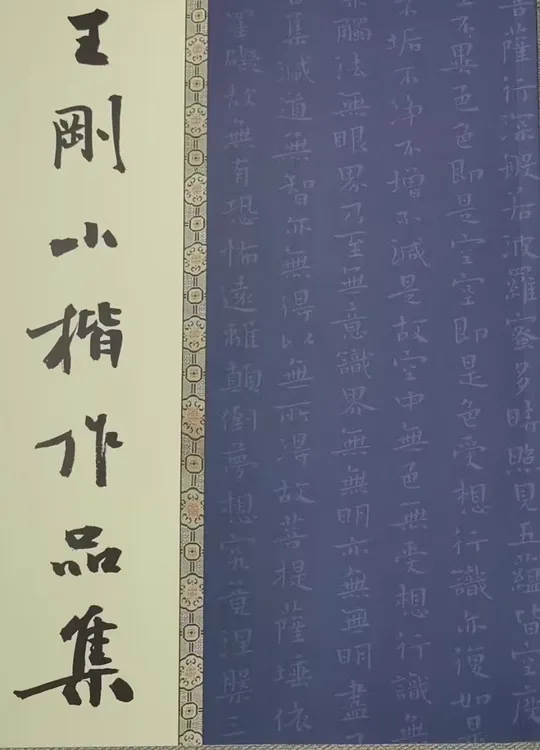 王剛小楷作品集
菩薩行深般若波羅蜜多時照見五蘊皆空度
不異色色即是空空即是色受想行識亦復如是
不垢不淨不增不減是故空中無色無受想行識無
觸法無眼界乃至無意識界無無明亦無無明盡
集滅道無智亦無得以無所得故菩提薩埵依
罣礙故無有恐怖遠離顛倒夢想究竟涅槃三